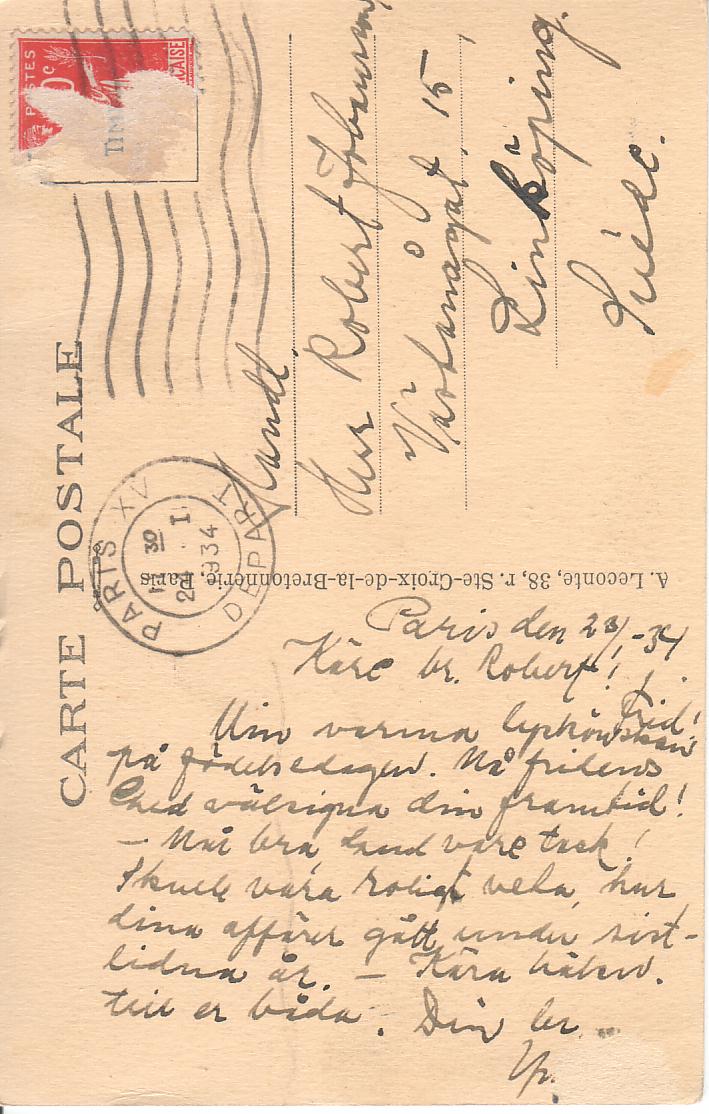 CARTE POSTALE
POSTES
ÇAISE
TIM
PARIS XV
30
I
1934
DEPART
A. Leconte, 38, r. Ste-Croix-de-la-Bretonnerie, Paris
Handl.
Herr Robert
15
Linköping.
Suède.
Paris den 23/1 -34
Käre br. Robert! Frid!
Min varma lyckönskan
på födelsedagen. Må fridens
Gud välsigna din framtid!
– Mår bra, Gud vare tack!
Skulle vara roligt veta, hur
dina affärer gått under sist-
lidna år. – Kära hälsn.
till er båda. Din br.